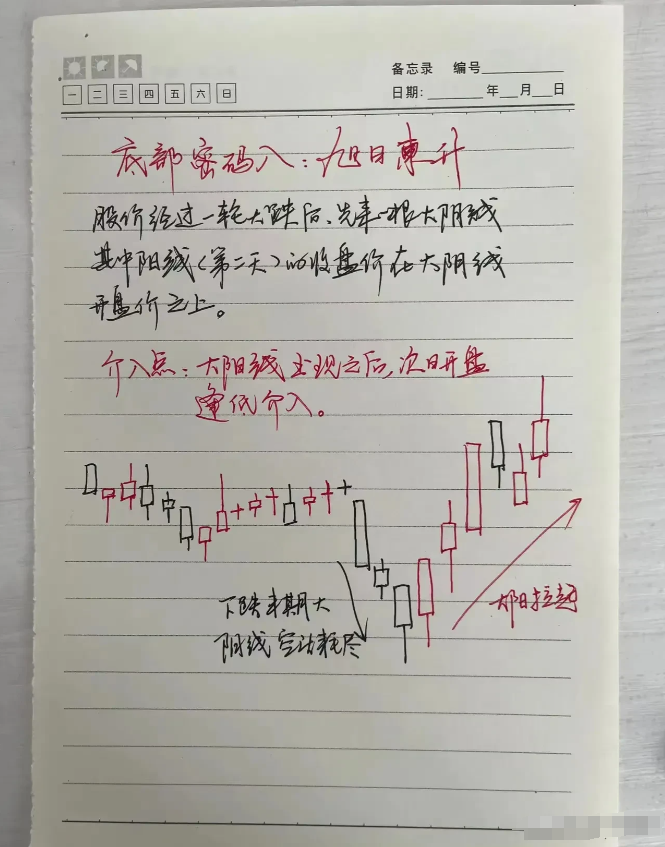 备忘录 编号
一 二 三 四 五 六 日
日期: 年 月 日
底部密码八：旭日東升
股价经过一轮大跌后、先来一根大阴线
其中阳线(第二天)的收盘价在大阴线
开盘价之上。
介入点：大阳线出现之后,次日开盘
逢低介入。
下跌末期大
阴线空
耗尽